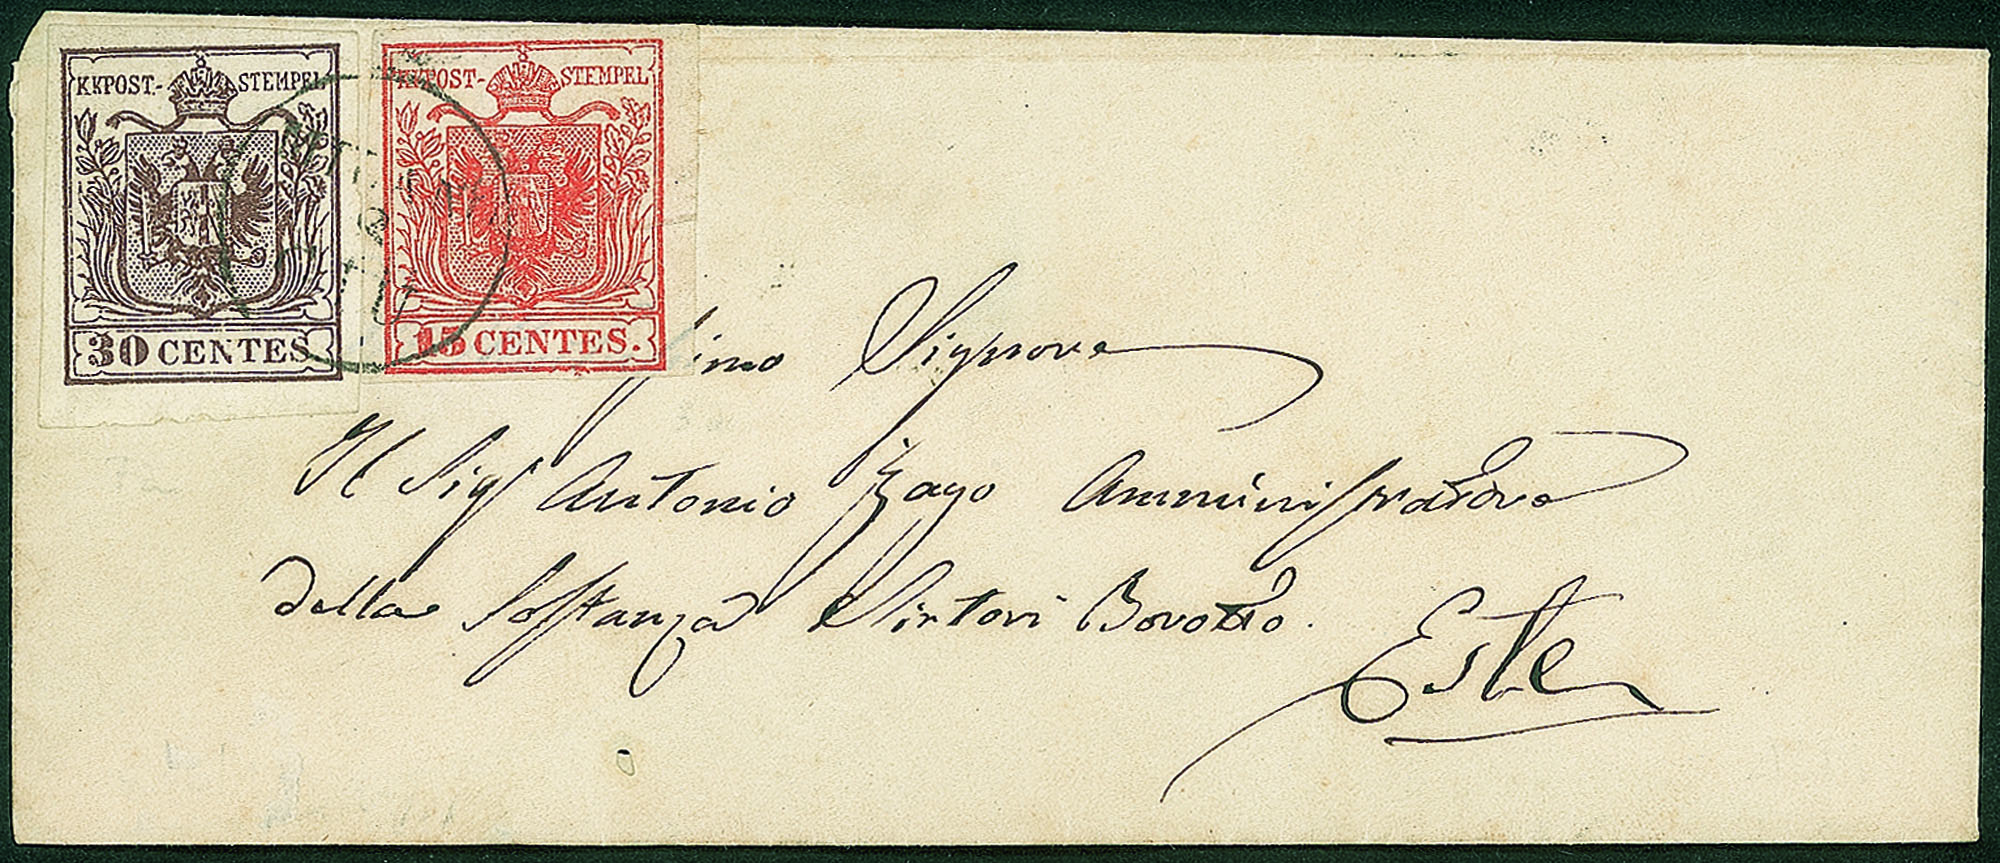 KKPOST.- STEMPEL
30 CENTES
KKPOST- STEMPEL
15 CENTES.
Signore
Il Sigr Antonio Zago Amministratore
della Sostanza
Este